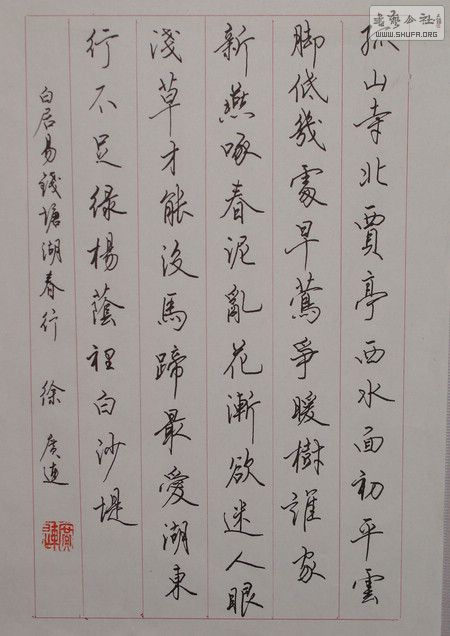 孤山寺北賈亭西水面初平雲
脚低幾處早鶯爭暖樹誰家
新燕啄春泥亂花漸欲迷人眼
淺草才能沒馬蹄最愛湖東
行不足绿楊蔭裡白沙堤
白居易錢塘湖春行 徐廣連
書藝公社
WWW.SHUFA.ORG